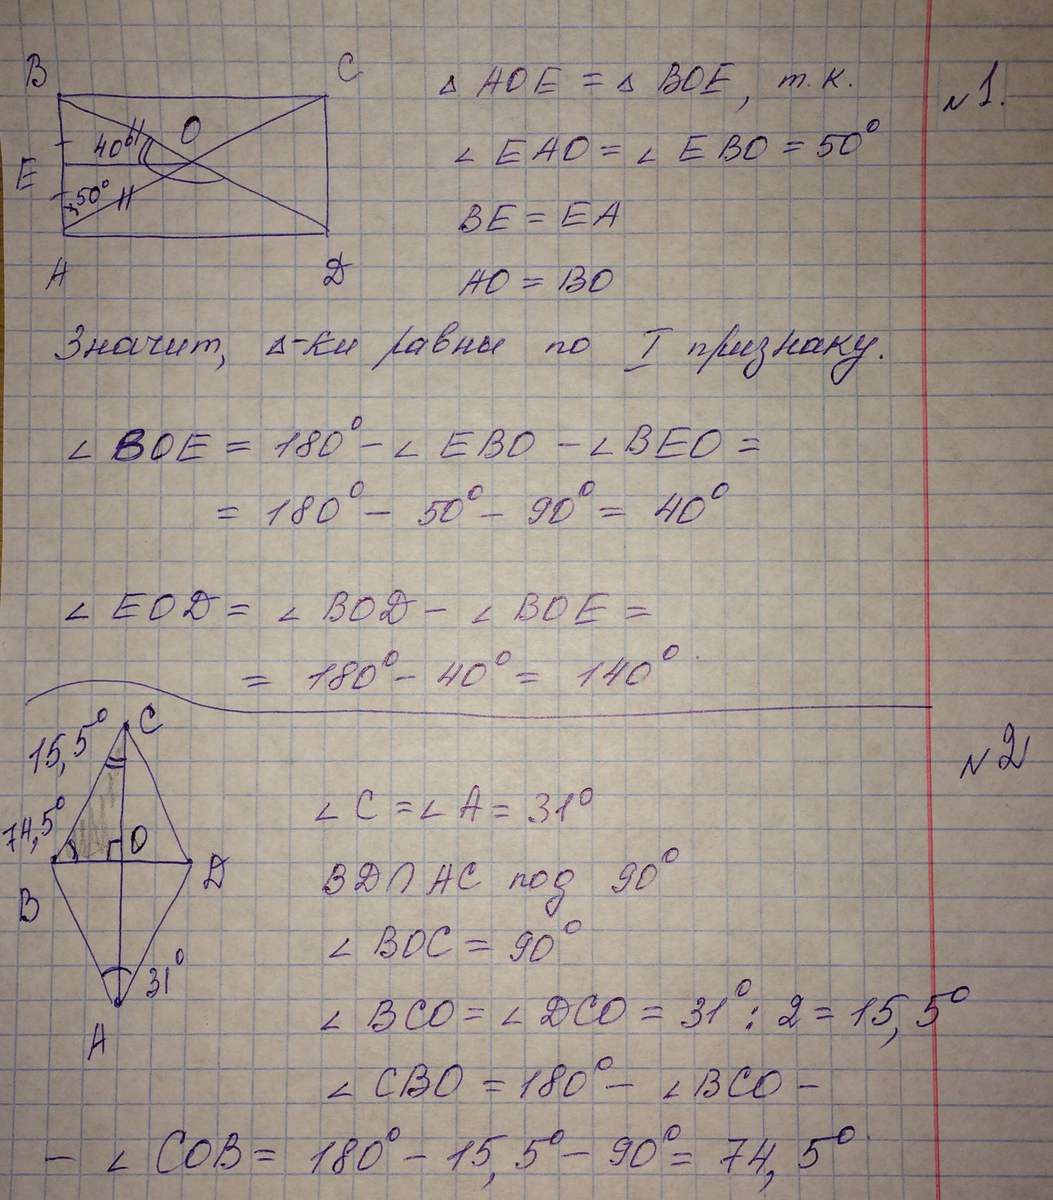 B C
40° O
E
50°
A D
△ AOE = △ BOE, т.к.
∠ EAO = ∠ EBO = 50°
BE = EA
AO = BO
№1.
Значит, △-ки равны по I признаку.
∠ BOE = 180° - ∠ EBO - ∠BEO =
= 180° - 50° - 90° = 40°
∠ EOD = ∠ BOD - ∠ BOE =
= 180° - 40° = 140°
№2
C
15,5°
74,5°
O
B D
31°
A
∠ C = ∠ A = 31°
BD∩AC под 90°
∠ BOC = 90°
∠ BCO = ∠ DCO = 31° : 2 = 15,5°
∠ CBO = 180° - ∠BCO -
- ∠ COB = 180° - 15,5° - 90° = 74,5°